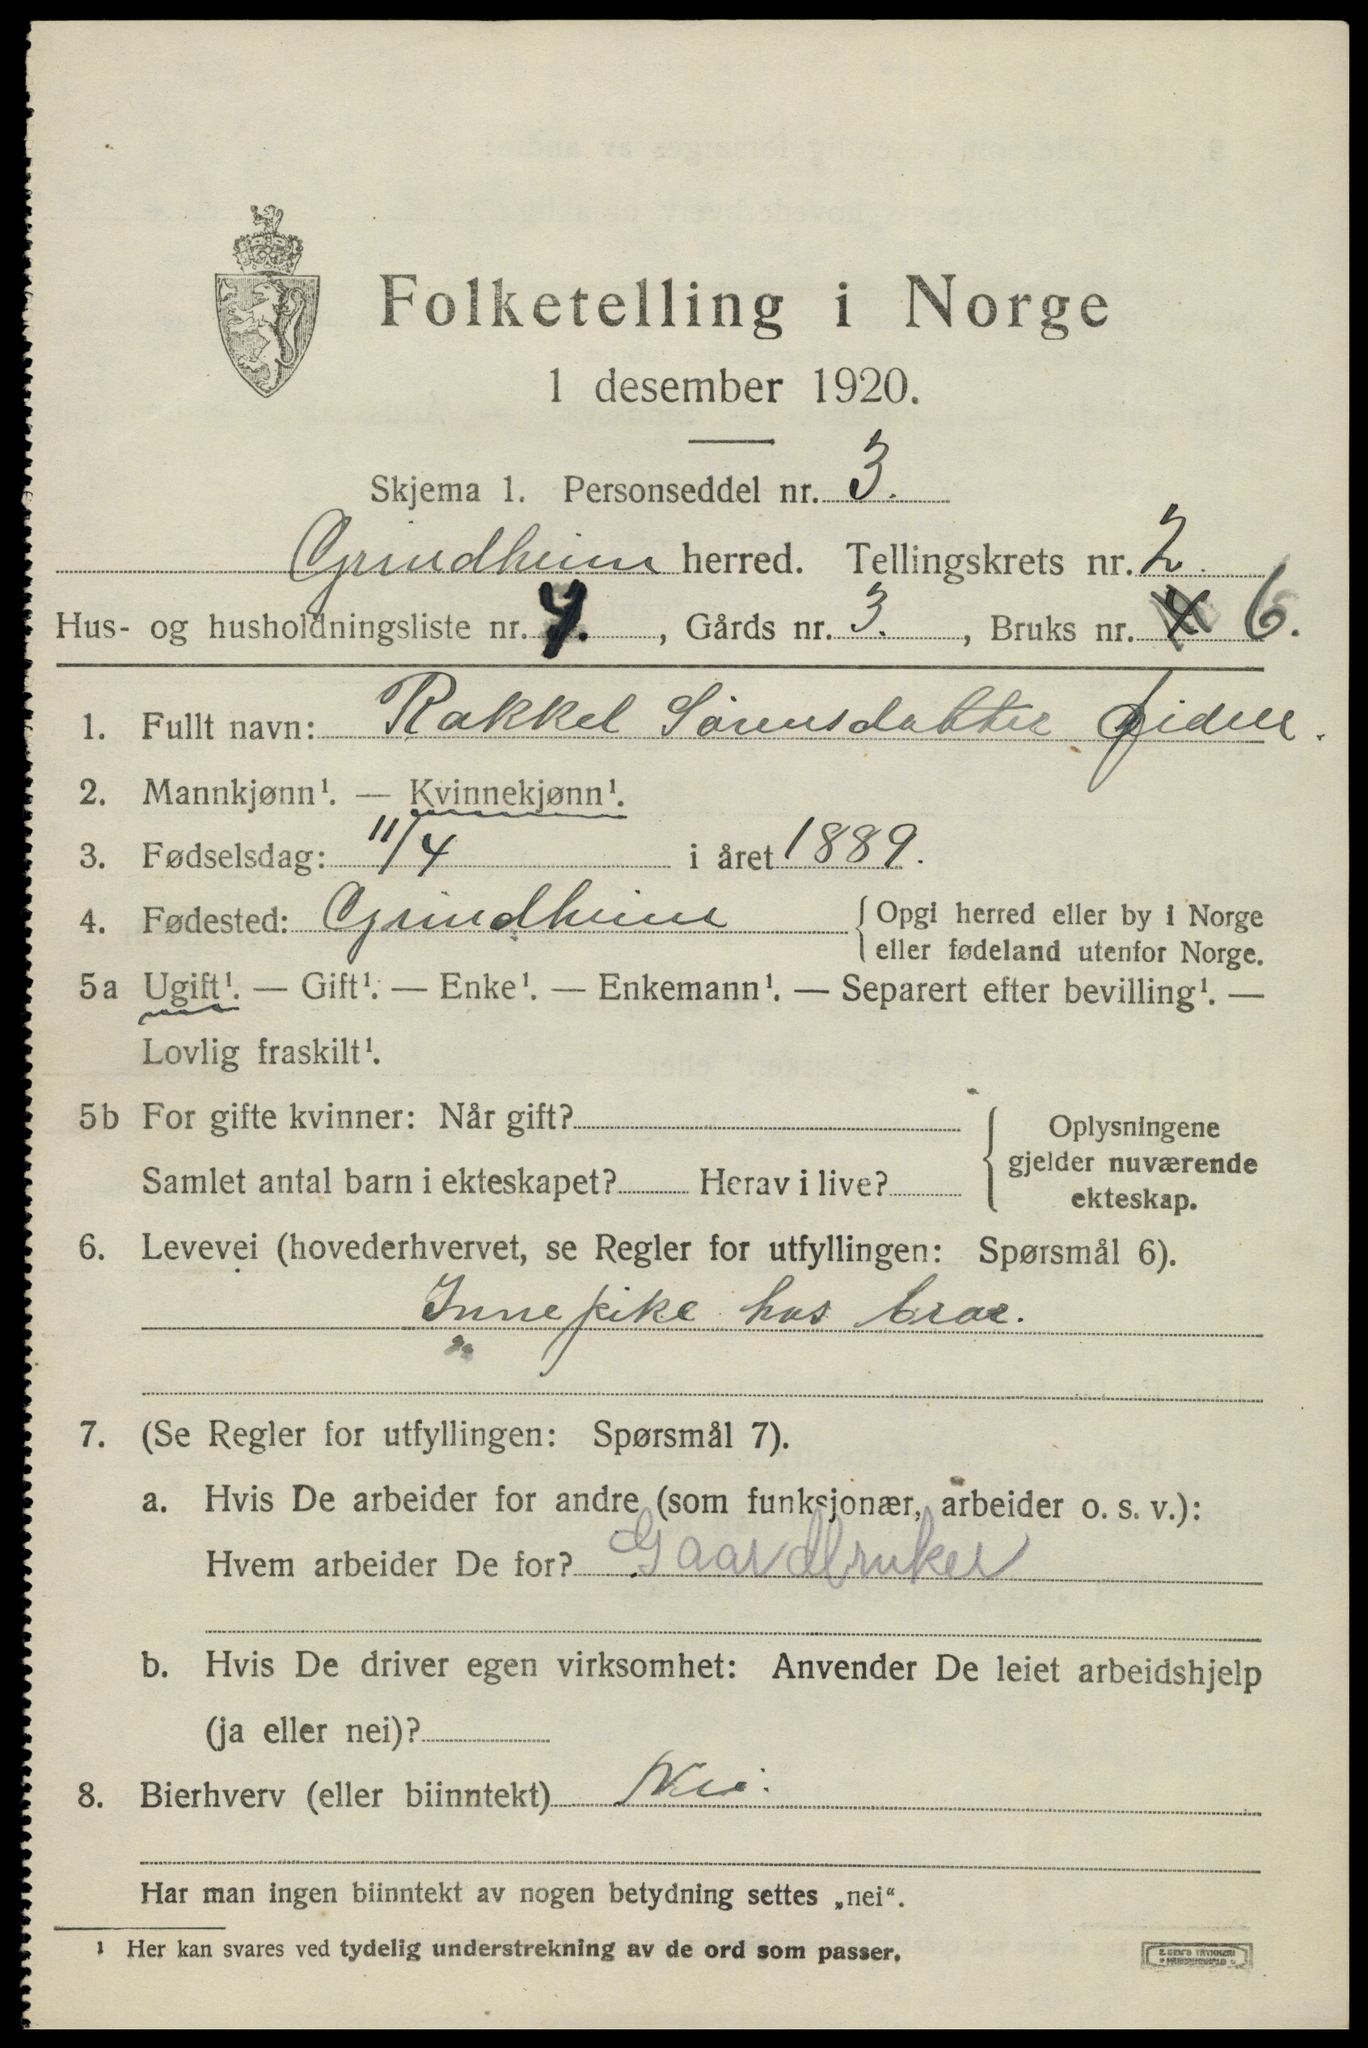 Folketelling i Norge
1 desember 1920.
Skjema 1. Personseddel nr. 3.
Grindheim herred. Tellingskrets nr. 2.
Hus- og husholdningsliste nr. 7., Gårds nr. 3., Bruks nr. 4 6.
1. Fullt navn: Rakkel Sørensdatter
2. Mannkjønn¹. — Kvinnekjønn¹.
3. Fødselsdag: 11/4 i året 1889.
4. Fødested: Grindheim { Opgi herred eller by i Norge
eller fødeland utenfor Norge.
5a Ugift¹. — Gift¹. — Enke¹. — Enkemann¹. — Separert efter bevilling¹. —
Lovlig fraskilt¹.
5b For gifte kvinner: Når gift?
Samlet antal barn i ekteskapet? Herav i live?
{ Oplysningene
gjelder nuværende
ekteskap.
6. Levevei (hovederhvervet, se Regler for utfyllingen: Spørsmål 6).
Innepike hos bror.
7. (Se Regler for utfyllingen: Spørsmål 7).
a. Hvis De arbeider for andre (som funksjonær, arbeider o. s. v.):
Hvem arbeider De for? Gaardbruker
b. Hvis De driver egen virksomhet: Anvender De leiet arbeidshjelp
(ja eller nei)?
8. Bierhverv (eller biinntekt) Nei.
Har man ingen biinntekt av nogen betydning settes „nei“.
¹ Her kan svares ved tydelig understrekning av de ord som passer.